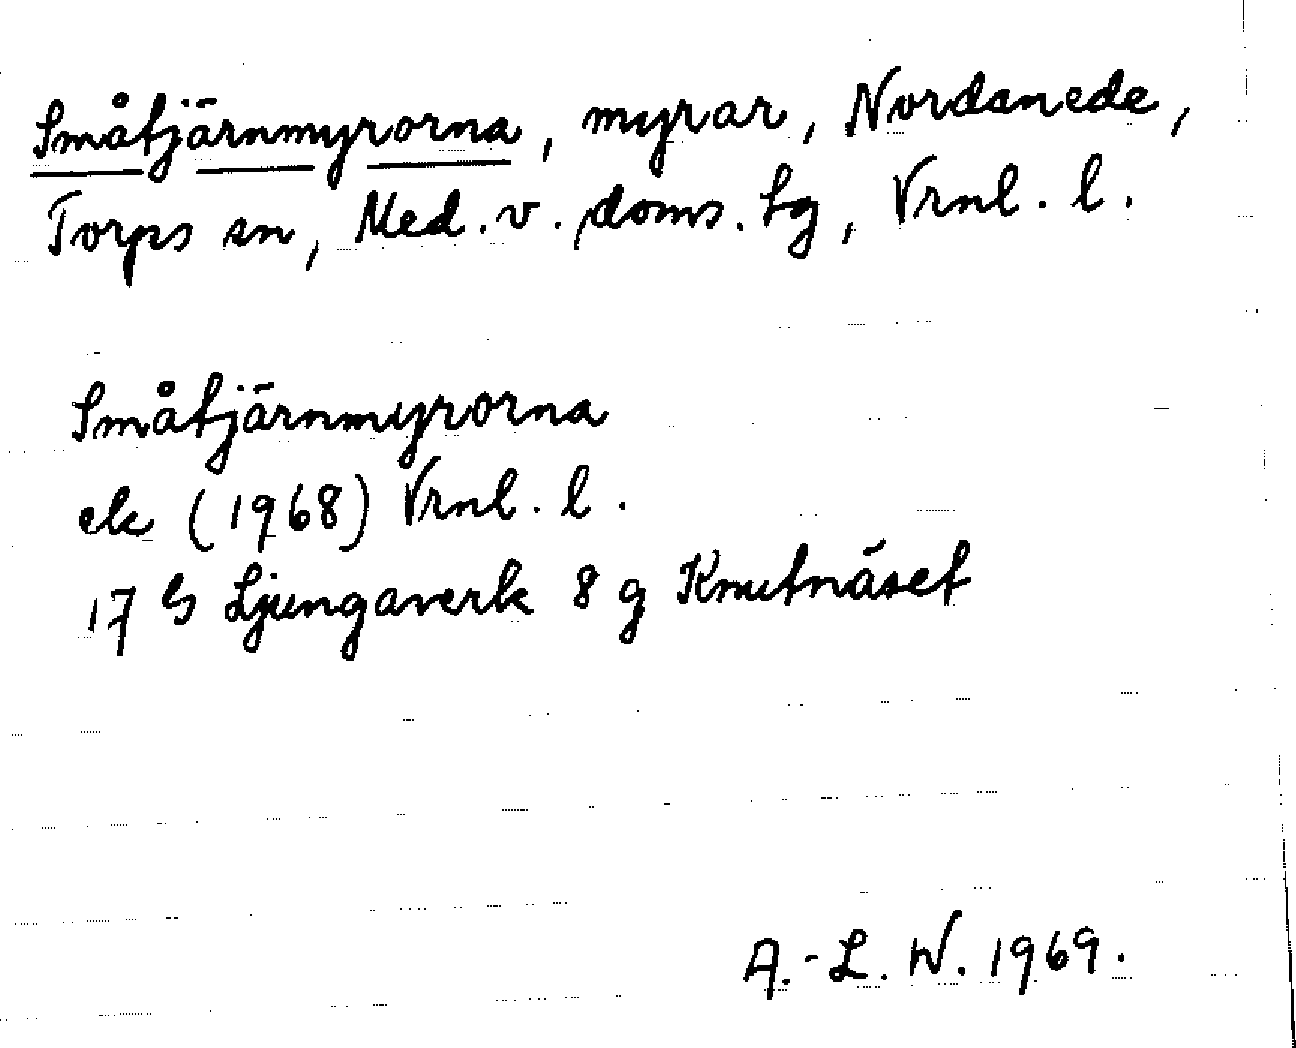 Småtjärnmyrorna, myrar, Nordanede,
Torps sn, Med. v. doms. hg, Vrnl. l.
Småtjärnmyrorna
ek (1968) Vrnl. l.
17 G Ljungaverk 8 g Knutnäset
A.-L. W. 1969.